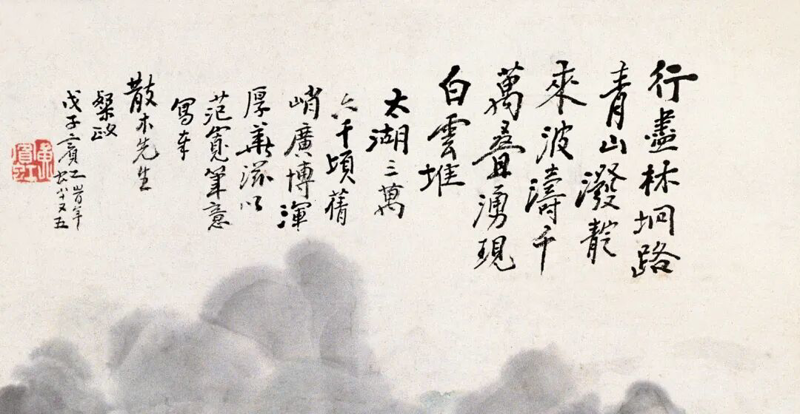 行盡林坰路
青山潑靛
來波濤千
萬疊湧現
白雲堆
太湖三萬
六千頃蒨
峭廣博渾
厚華滋以
范寬筆意
寫奉
散木先生
粲政
戊子賓虹時年
八十又五